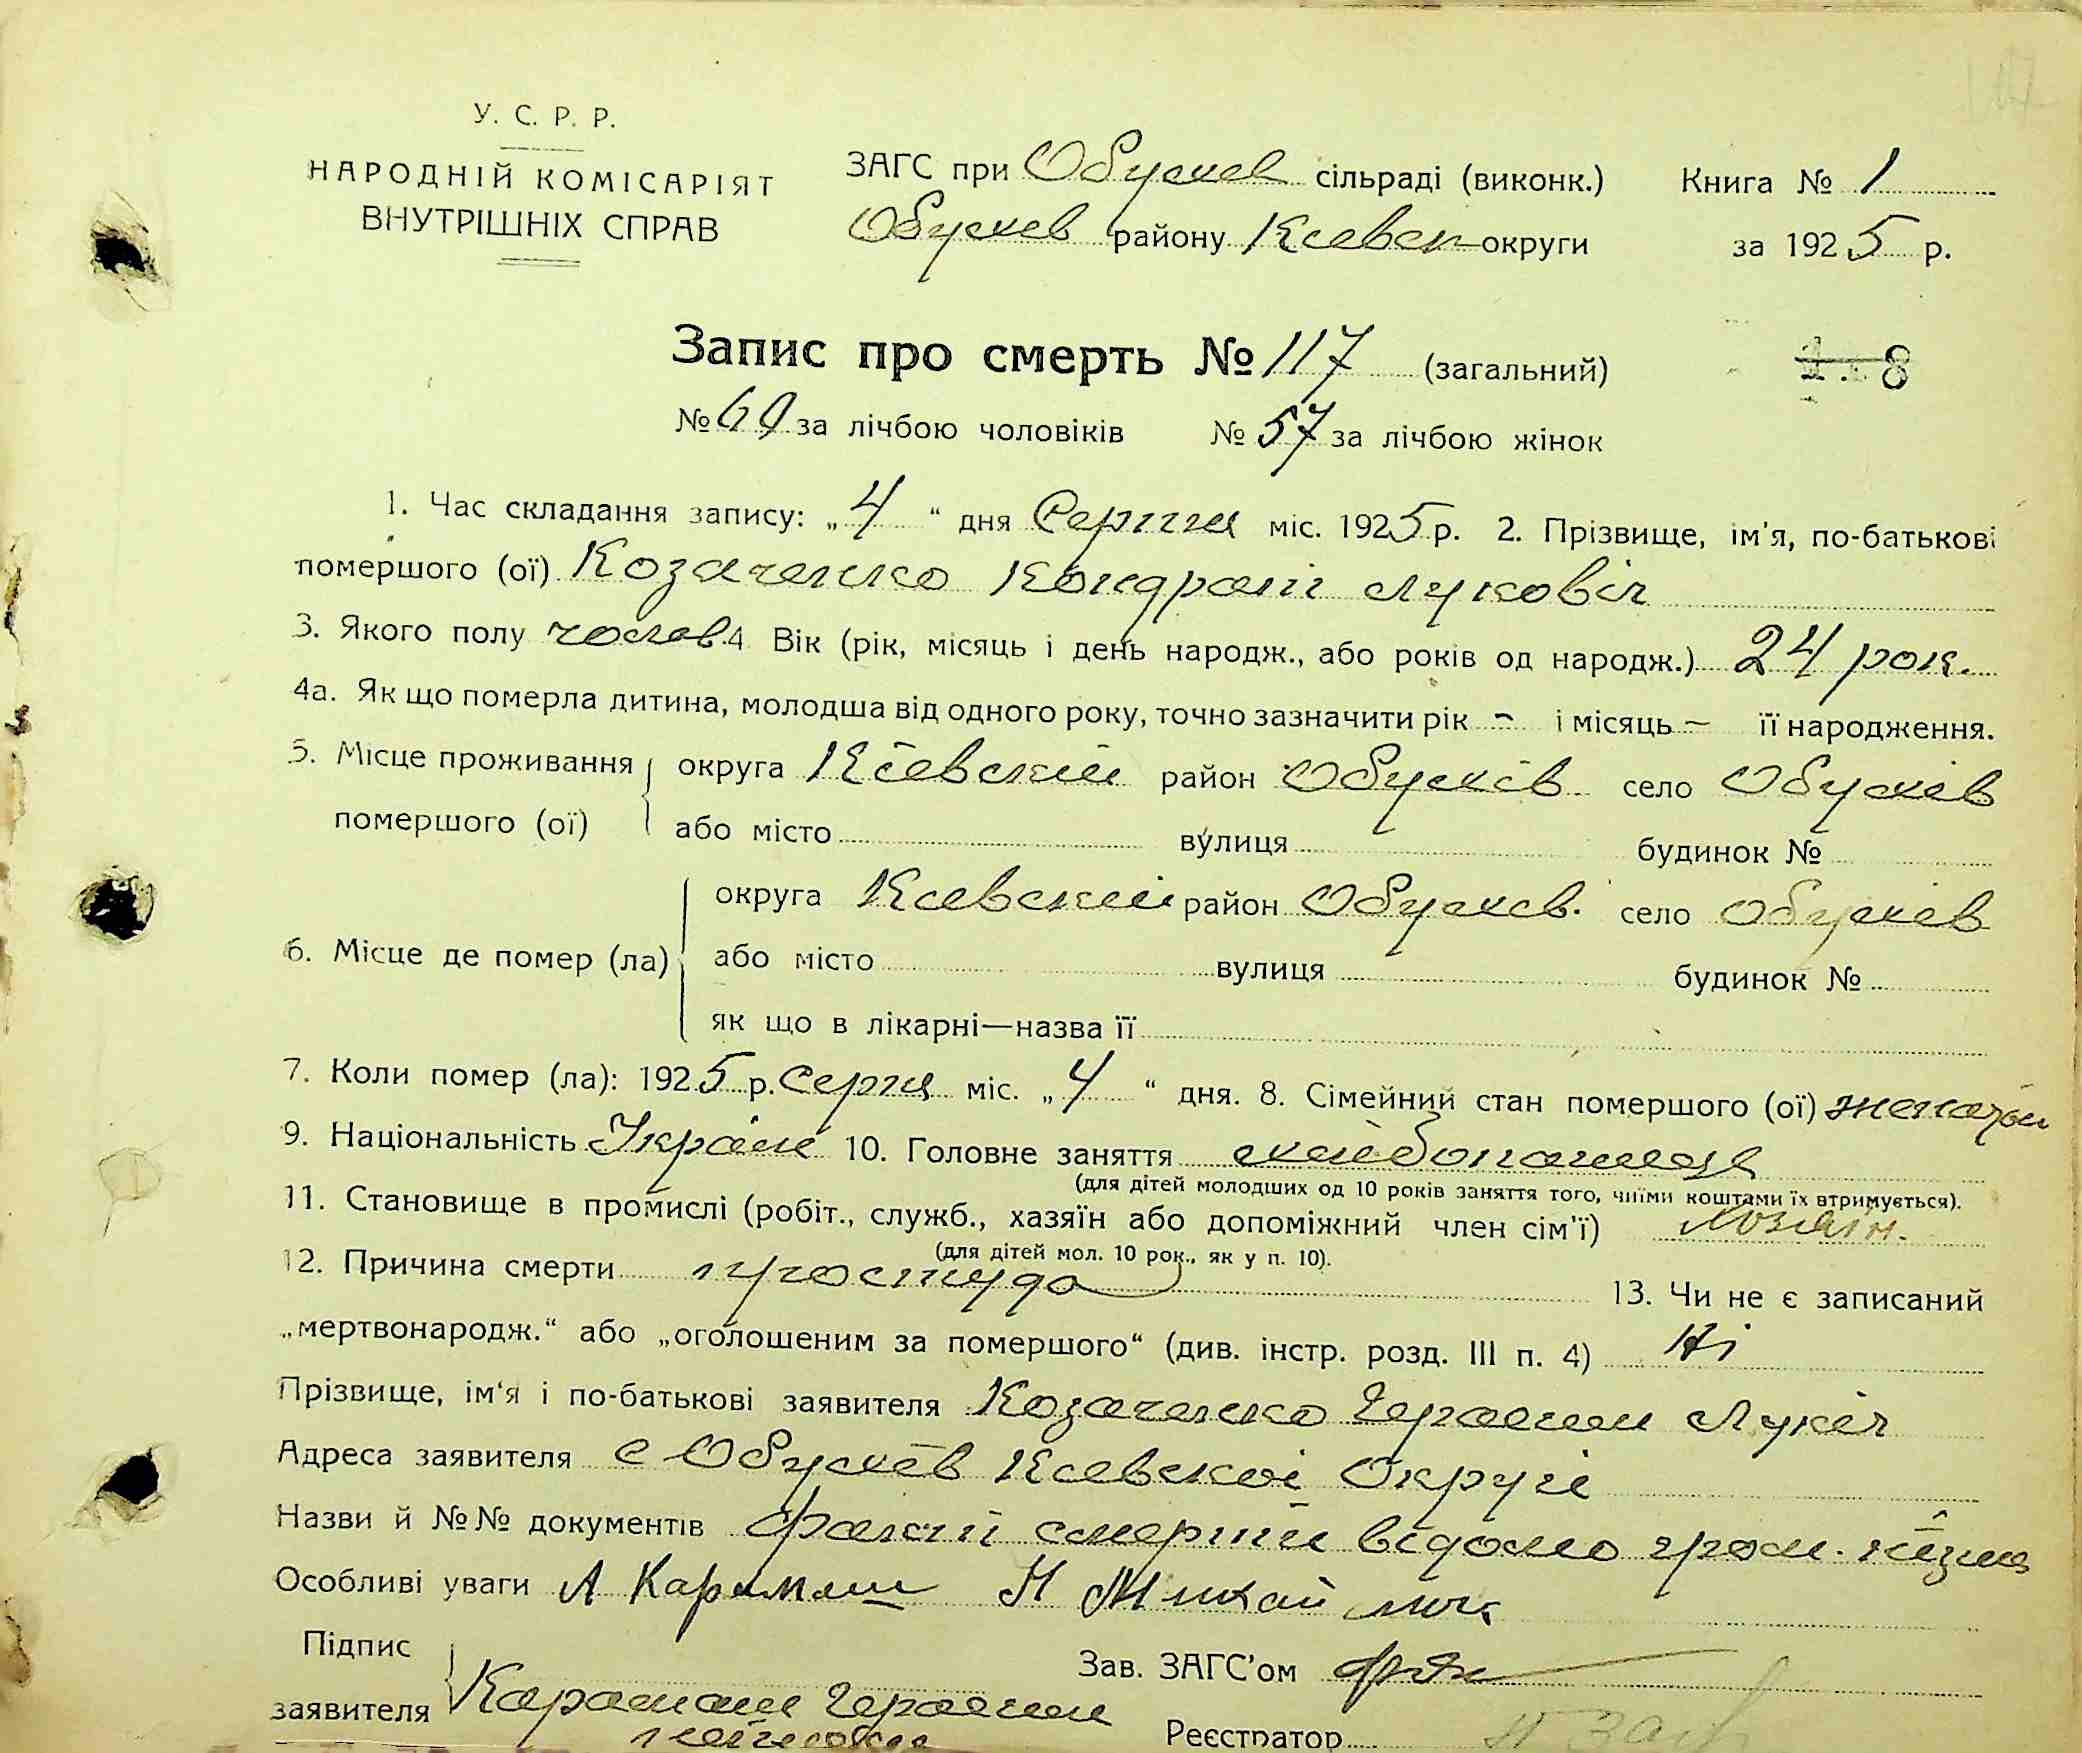 У. С. Р. Р.
НАРОДНІЙ КОМІСАРІЯТ
ВНУТРІШНІХ СПРАВ
ЗАГС при Обухов сільраді (виконк.)
Обухов району Киевск округи
Книга № 1
за 1925 р.
Запис про смерть № 117 (загальний)
8
№ 69 за лічбою чоловіків № 57 за лічбою жінок
1. Час складання запису: „4“ дня Серпня міс. 1925 р. 2. Прізвище, ім'я, по-батькові
помершого (ої) Козаченко Кондрат Луковіч
3. Якого полу чолов. 4 Вік (рік, місяць і день народж., або років од народж.) 24 рок.
4а. Як що померла дитина, молодша від одного року, точно зазначити рік - і місяць - її народження.
5. Місце проживання помершого (ої) округа Кіевский район Обухів село Обухів
або місто вулиця будинок №
6. Місце де помер (ла) округа Киевский район Обухов. село Обухів
або місто вулиця будинок №
як що в лікарні—назва її
7. Коли помер (ла): 1925 р. Серпня міс. „4“ дня. 8. Сімейний стан помершого (ої) женатый
9. Національність Украін 10. Головне заняття
(для дітей молодших од 10 років заняття того, чиїми коштами їх втримується).
11. Становище в промислі (робіт., служб., хазяїн або допоміжний член сім'ї) хозяін.
(для дітей мол. 10 рок., як у п. 10).
12. Причина смерти простуда
13. Чи не є записаний
„мертвонародж.“ або „оголошеним за помершого“ (див. інстр. розд. III п. 4) Ні
Прізвище, ім'я і по-батькові заявителя Козаченко Герасим Лукіч
Адреса заявителя с Обухів Киевскоі Округі
Назви й №№ документів смерти відомо гром.
Особливі уваги А Карамаш Н
Підпис
заявителя Карамаш Герасим
Зав. ЗАГС'ом
Реєстратор